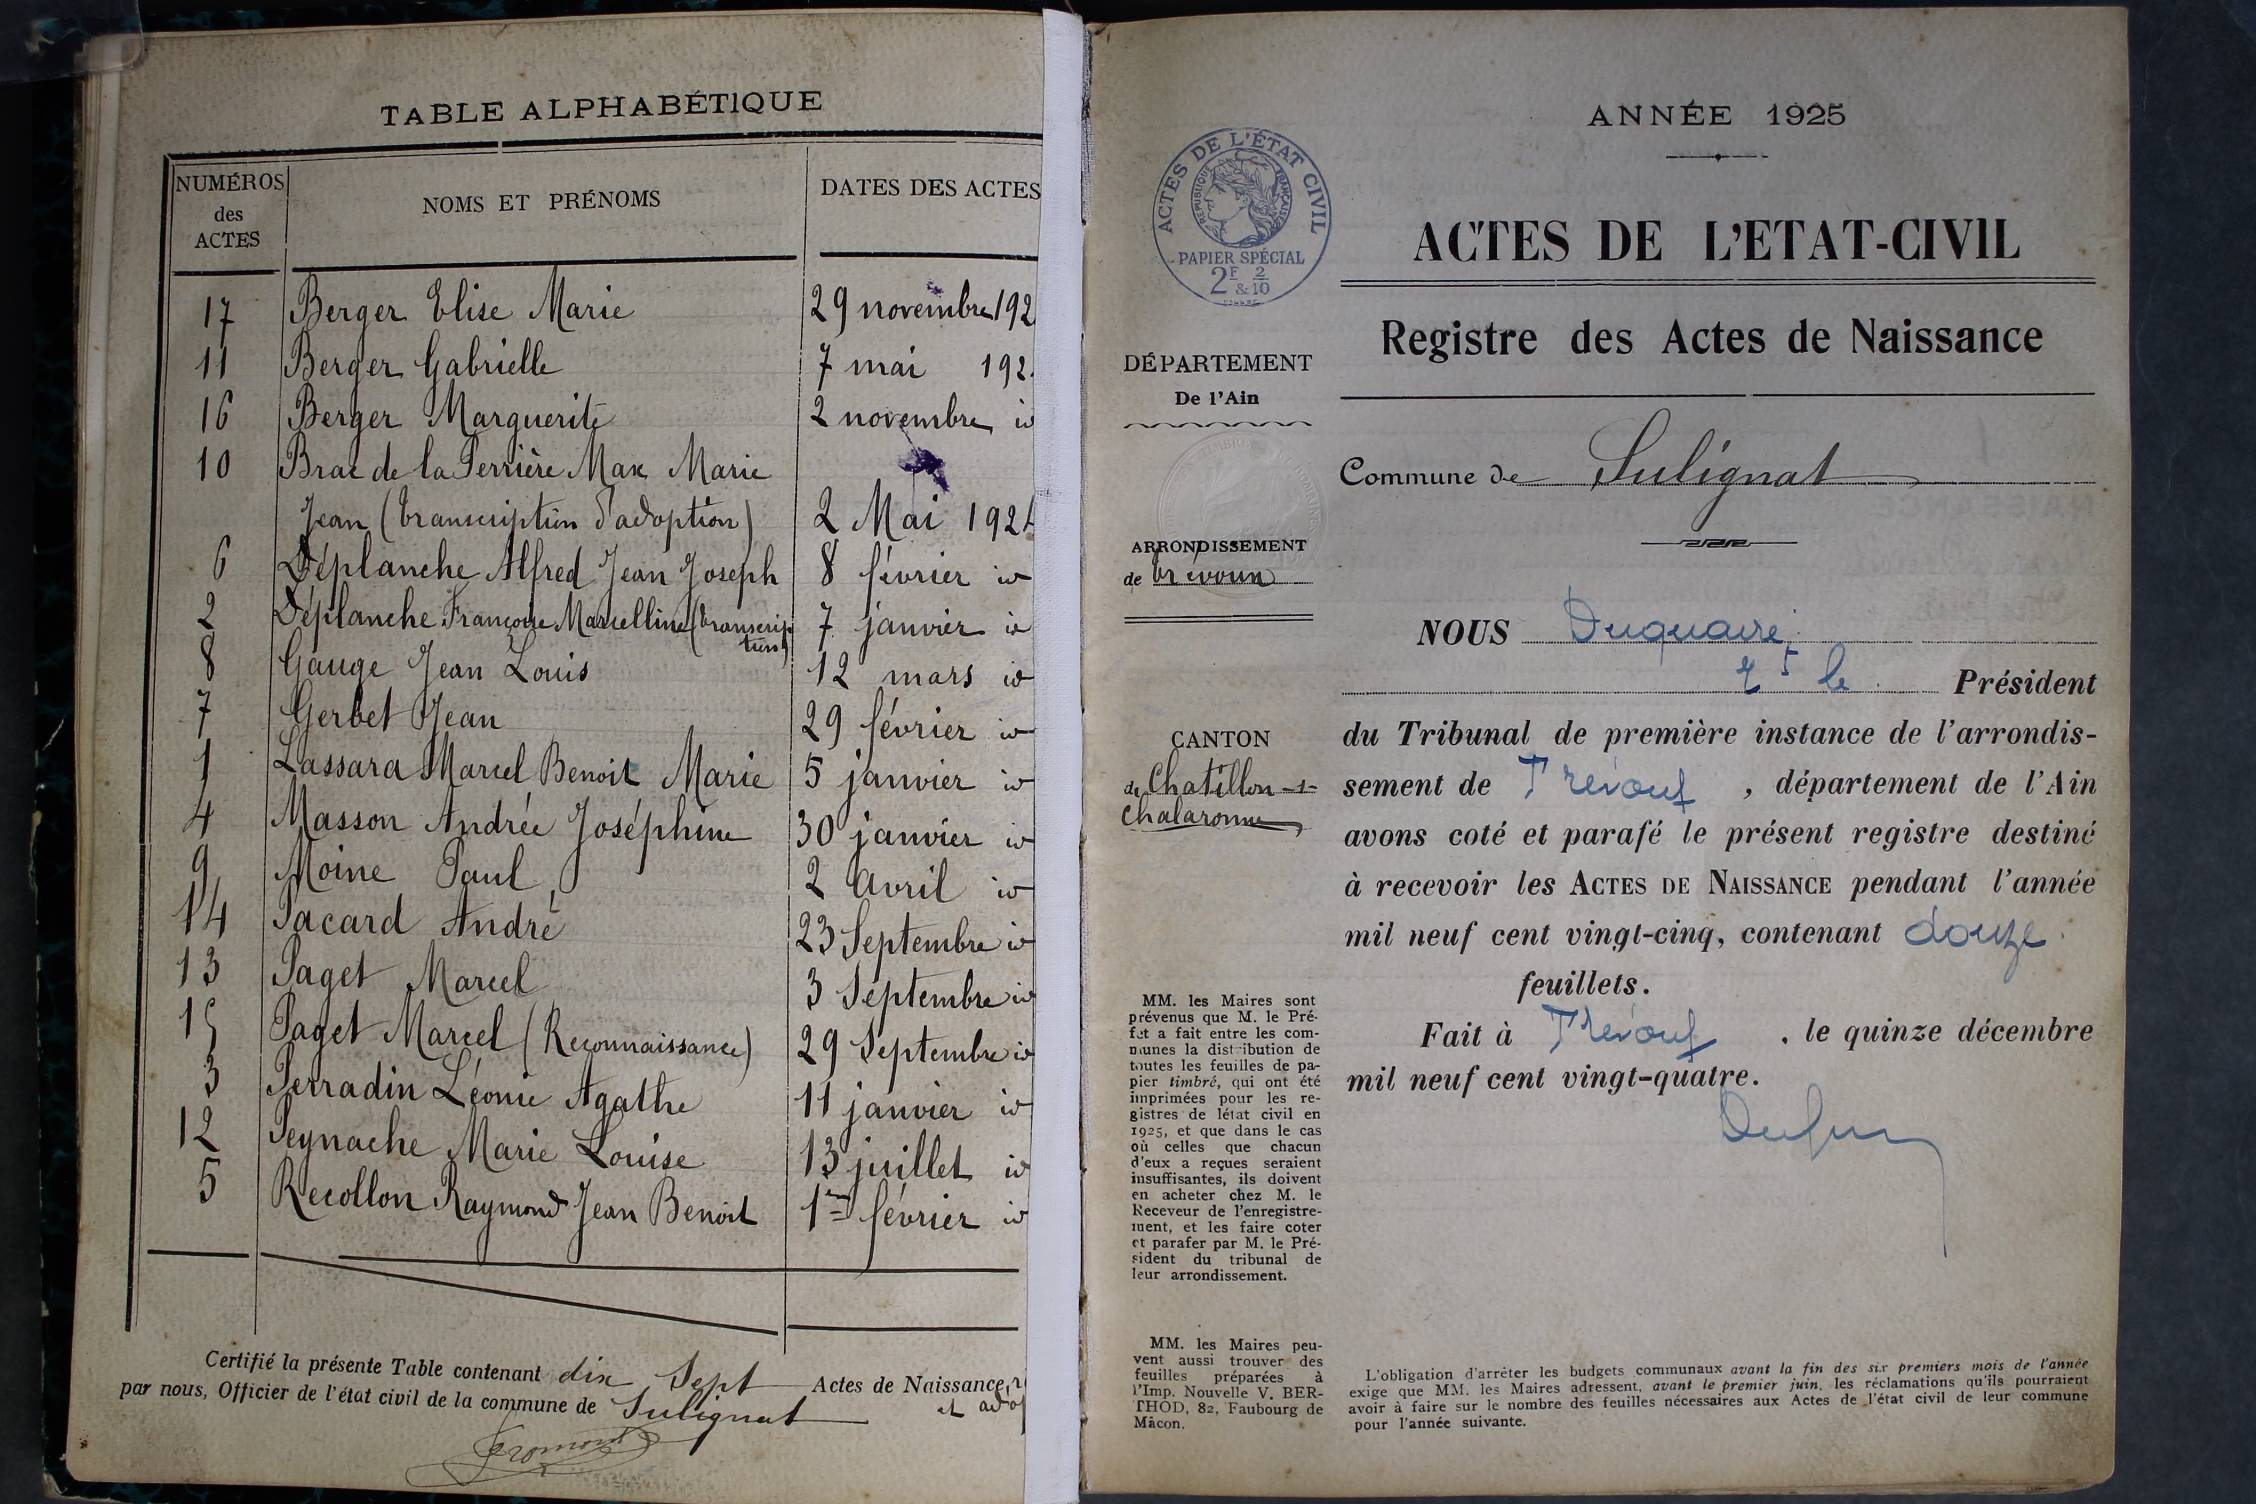 TABLE ALPHABÉTIQUE
NUMÉROS
des
ACTES
NOMS ET PRÉNOMS
DATES DES ACTES
17 Berger Elise Marie 29 novembre 192
11 Berger Gabrielle 7 mai 192
16 Berger Marguerite 2 novembre id
10 Brac de la Perrière Max Marie
Jean (transcription d'adoption) 2 Mai 192
6 Déplanche Alfred Jean Joseph 8 février id
2 Déplanche Françoise Marcelline (transcrip
tion) 7 janvier id
8 Gauge Jean Louis 12 mars id
7 Gerbet Jean 29 février id
1 Lassara Marcel Benoit Marie 5 janvier id
4 Masson Andrée Joséphine 30 janvier id
9 Moine Paul 2 avril id
14 Pacard André 23 Septembre id
13 Paget Marcel 3 Septembre id
15 Paget Marcel (Reconnaissance) 29 Septembre id
3 Perradin Léonie Agathe 11 janvier id
12 Peynache Marie Louise 13 juillet id
5 Recollon Raymond Jean Benoit 1er février id
Certifié la présente Table contenant dix Sept Actes de Naissance,
par nous, Officier de l'état civil de la commune de Sulignat et
Fromont
ANNÉE 1925
ACTES DE L'ÉTAT CIVIL
RÉPUBLIQUE FRANÇAISE
PAPIER SPÉCIAL
2F & 2/10
ACTES DE L'ETAT-CIVIL
Registre des Actes de Naissance
DÉPARTEMENT
De l'Ain
Commune de Sulignat
ARRONDISSEMENT
de Trévoux
NOUS Duquaire
Président
CANTON
de Chatillon-s-
Chalaronne
du Tribunal de première instance de l'arrondis-
sement de Trévoux, département de l'Ain
avons coté et parafé le présent registre destiné
à recevoir les ACTES DE NAISSANCE pendant l'année
mil neuf cent vingt-cinq, contenant douze
feuillets.
Fait à Trévoux, le quinze décembre
mil neuf cent vingt-quatre.
MM. les Maires sont
prévenus que M. le Pré-
fet a fait entre les com-
munes la distribution de
toutes les feuilles de pa-
pier timbré, qui ont été
imprimées pour les re-
gistres de létat civil en
1925, et que dans le cas
où celles que chacun
d'eux a reçues seraient
insuffisantes, ils doivent
en acheter chez M. le
Receveur de l'enregistre-
ment, et les faire coter
et parafer par M. le Pré-
sident du tribunal de
leur arrondissement.
MM. les Maires peu-
vent aussi trouver des
feuilles préparées à
l'Imp. Nouvelle V. BER-
THOD, 82, Faubourg de
Mâcon.
L'obligation d'arrêter les budgets communaux avant la fin des six premiers mois de l'année
exige que MM. les Maires adressent, avant le premier juin, les réclamations qu'ils pourraient
avoir à faire sur le nombre des feuilles nécessaires aux Actes de l'état civil de leur commune
pour l'année suivante.